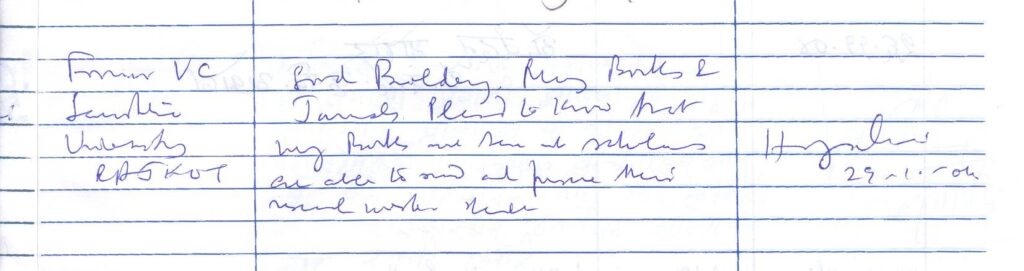 Former VC
Saurashtra
University
RAJKOT
Good Building, Many Books &
Journals Pleased to know that
my Books are here and scholars
are able to read and pursue their
research works
29-1-04